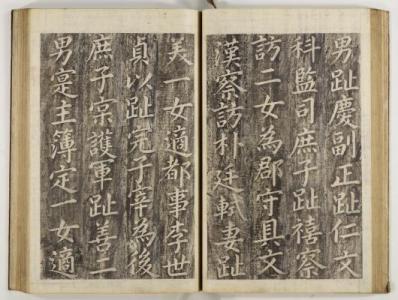 男趾慶副正趾仁文
科監司庶子趾禧察
訪二女為郡守具文
漢察訪朴廷軾妻趾
美一女適都事李世
貞以趾完子宰為後
庶子宗護軍趾善二
男寔主簿定一女適